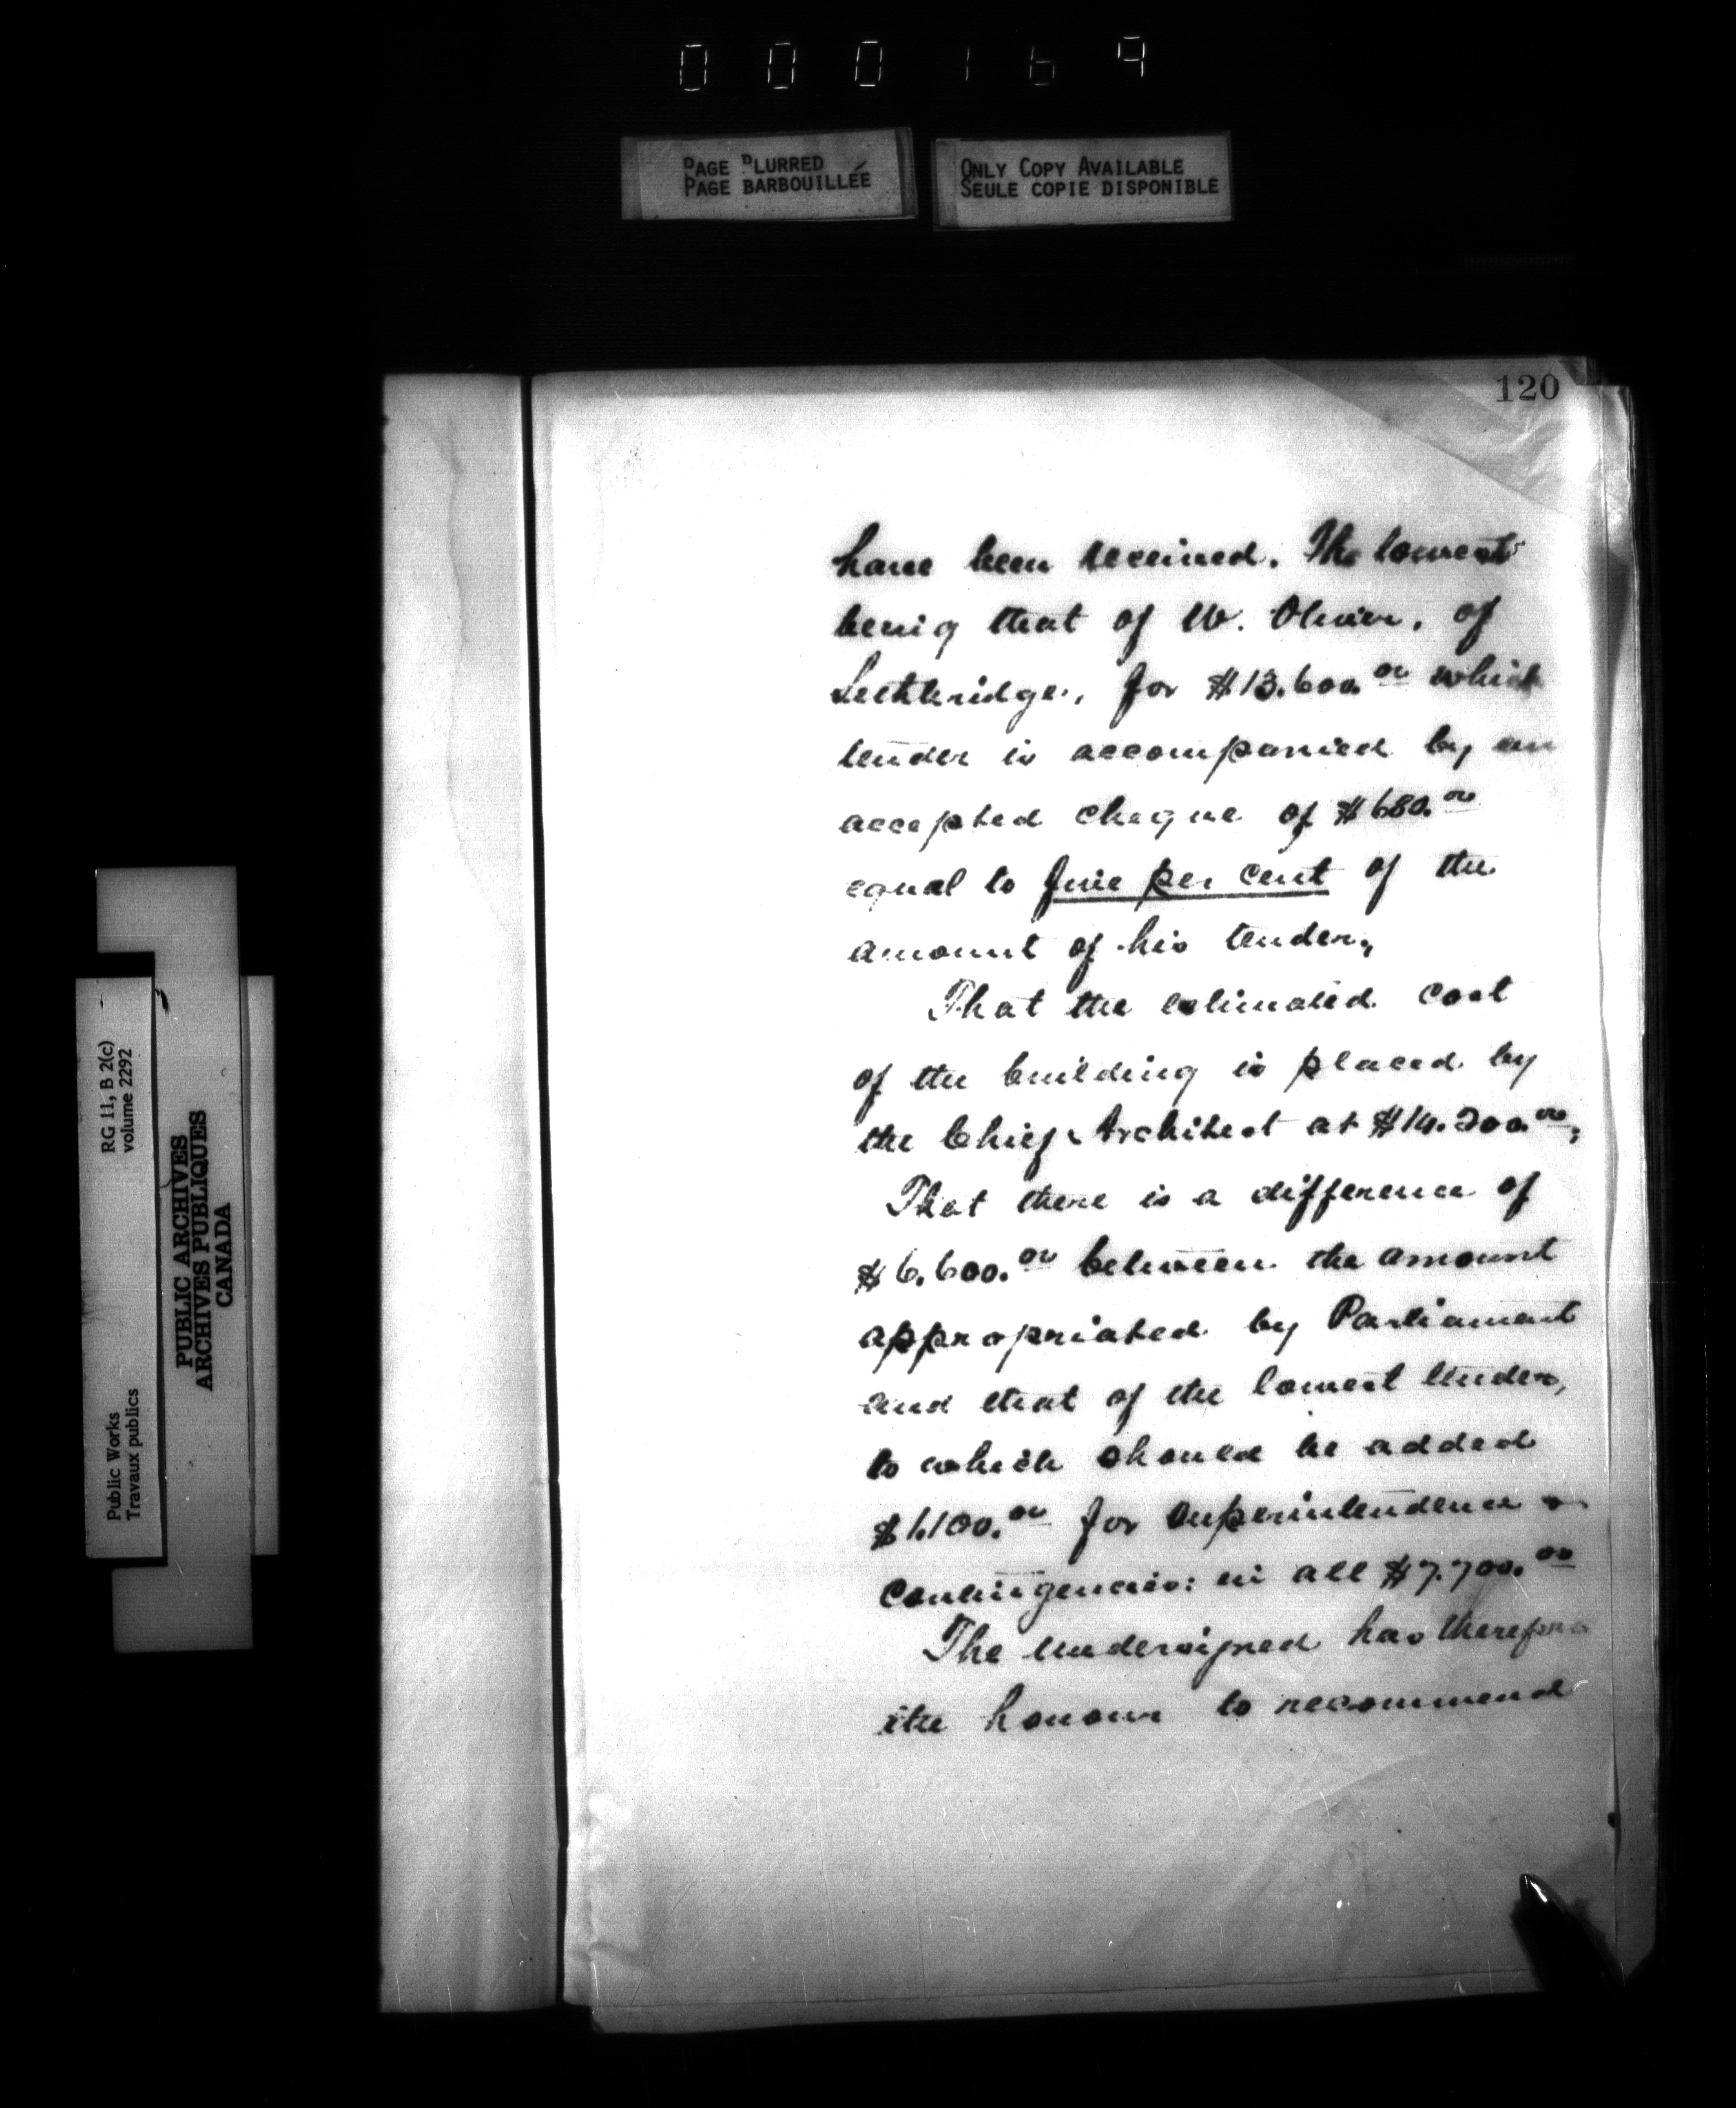 000169
PAGE BLURRED
PAGE BARBOUILLÉE
ONLY COPY AVAILABLE
SEULE COPIE DISPONIBLE
120
have been received. The lowest
being that of W. Oliver, of
Lethbridge, for $13.600.00 which
tender is accompanied by an
accepted cheque of $680.00
equal to five per cent of the
amount of his tender;
That the estimated cost
of the building is placed by
the Chief Architect at $14.200.00;
That there is a difference of
$6.600.00 between the amount
appropriated by Parliament
and that of the lowest tender,
to which should be added
$1.100.00 for superintendence &
contingencies: in all $7.700.00
The undersigned has therefore
the honour to recommend
RG 11, B 2(c)
volume 2292
Public Works
Travaux publics
PUBLIC ARCHIVES
ARCHIVES PUBLIQUES
CANADA